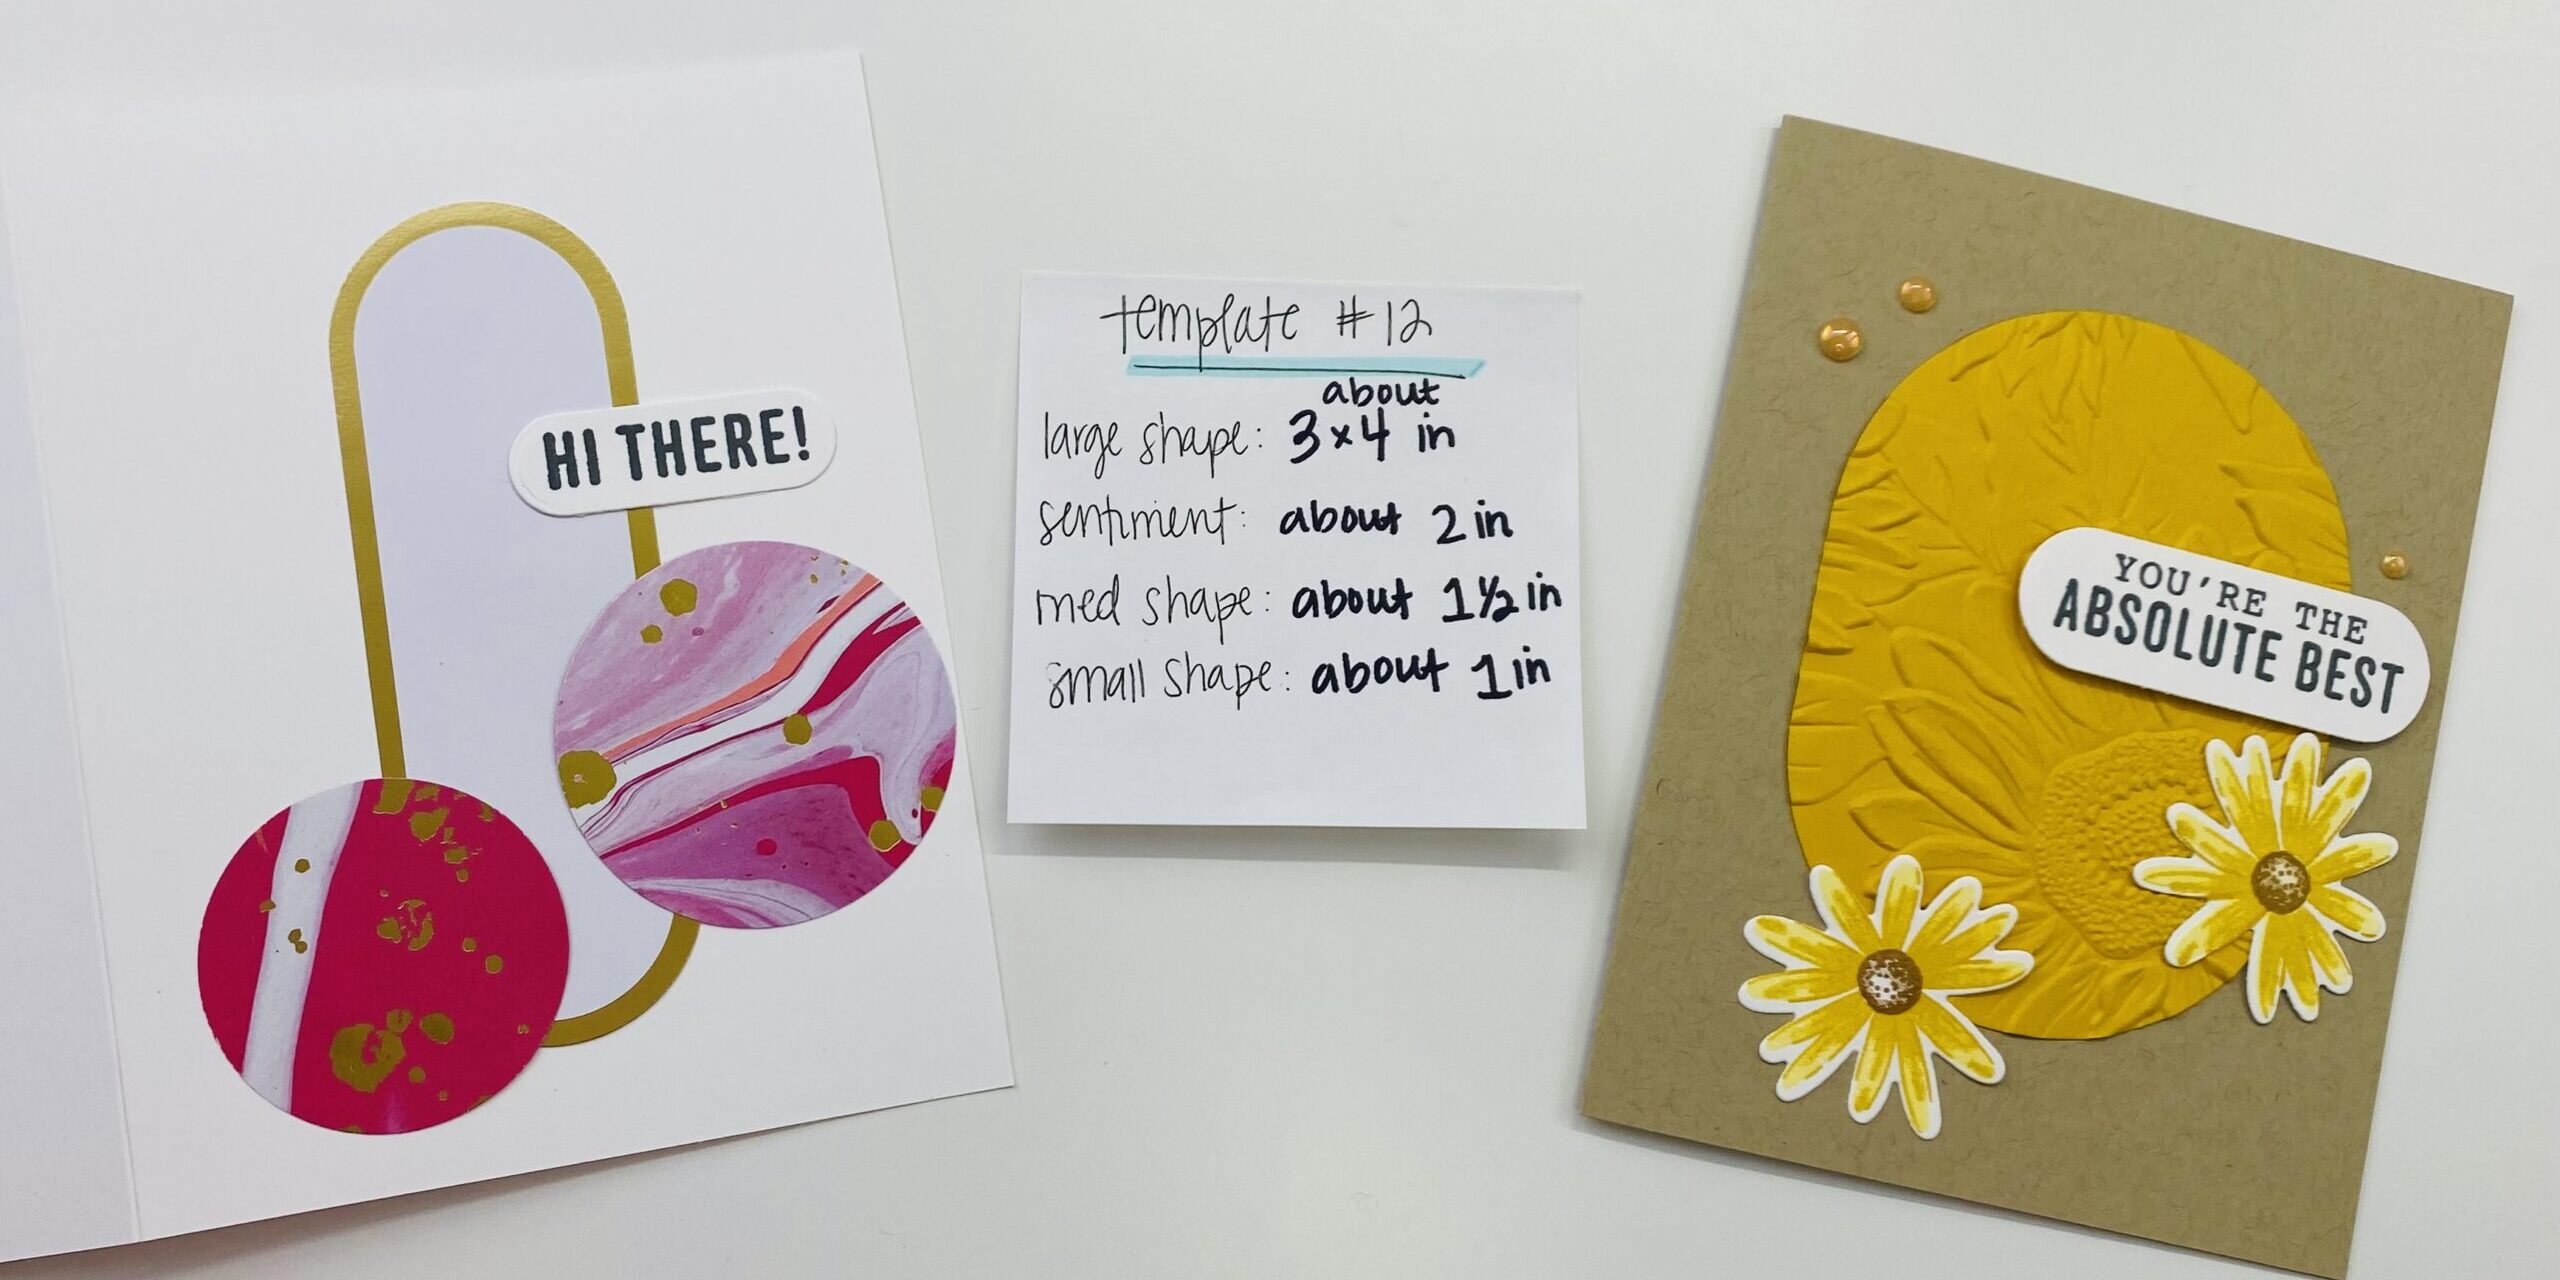 HI THERE!
template #12
about
large shape: 3x4 in
sentiment: about 2 in
med shape: about 1 1/2 in
small shape: about 1 in
YOU'RE THE
ABSOLUTE BEST